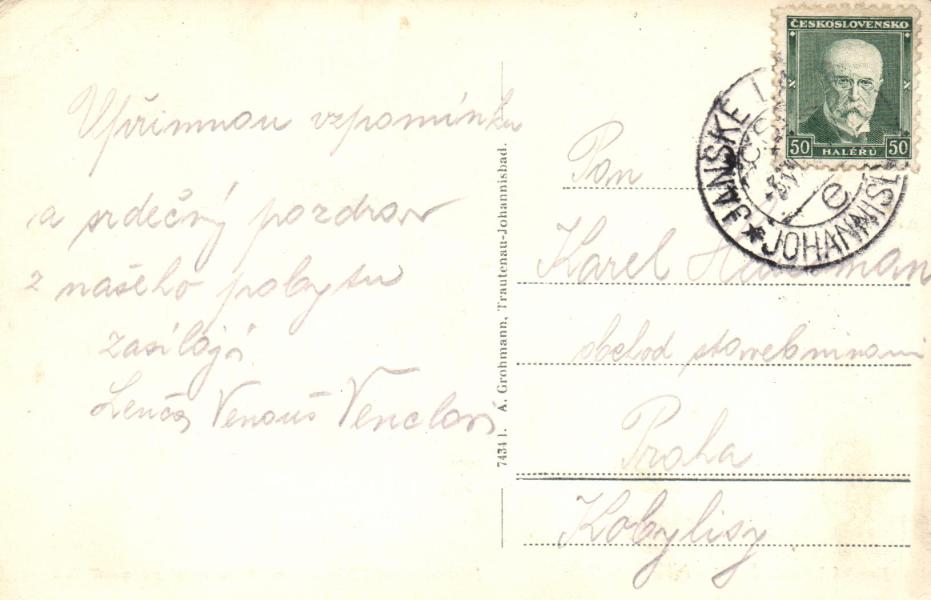 Upřimnou vzpomínku
a srdečný pozdrav
z našeho pobytu
zasílají
Venouš Venclovi
7434 1. A. Grohmann, Trautenau-Johannisbad.
ČESKOSLOVENSKO
50 HALÉŘŮ 50
JÁNSKÉ L
JOHANNIS
e
Pan
Karel
obchod
Praha
Kobylisy